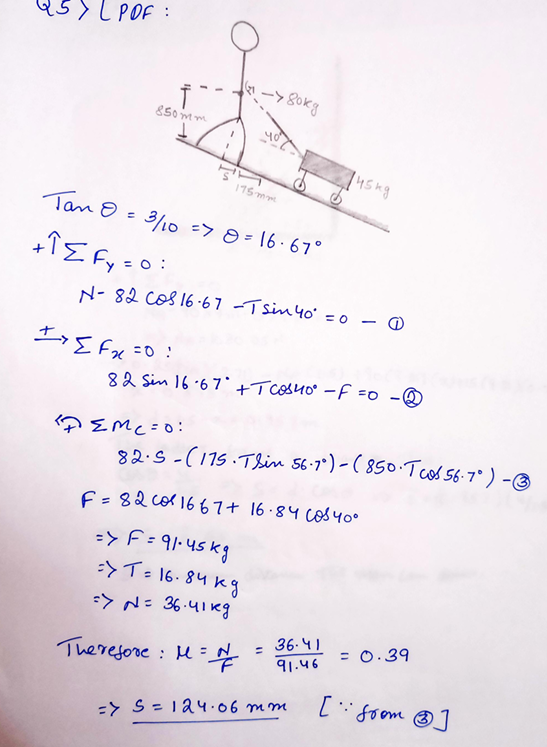 Q5> [PDF:
G → 80kg
850mm
40°
S
175mm
45kg
Tan θ = 3/10 => θ = 16.67°
+↑ Σ Fy = 0 :
N - 82 cos 16.67 - T sin 40° = 0 - ①
+→ Σ Fx = 0 :
82 sin 16.67° + T cos 40° - F = 0 - ②
↶+ Σ Mc = 0 :
82·S - (175·T sin 56.7°) - (850·T cos 56.7°) - ③
F = 82 cos 16 67 + 16.84 cos 40°
=> F = 91.45 kg
=> T = 16.84 kg
=> N = 36.41 kg
Therefore : μ = N/F = 36.41/91.46 = 0.39
=> S = 124.06 mm [∵ from ③]